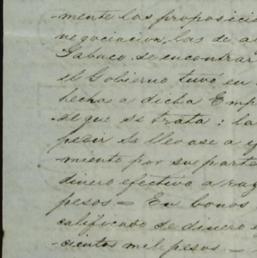 mente las proposicio
negociacion, las de a
Tabaco, se encontrar
el Gobierno tuvo en
hecha a dicha Emp
de que se trata: la
pedir se llevase a
miento por su parte
dinero efectivo a raz
pesos = En bonos
calificado de dinero
cientos mil pesos —